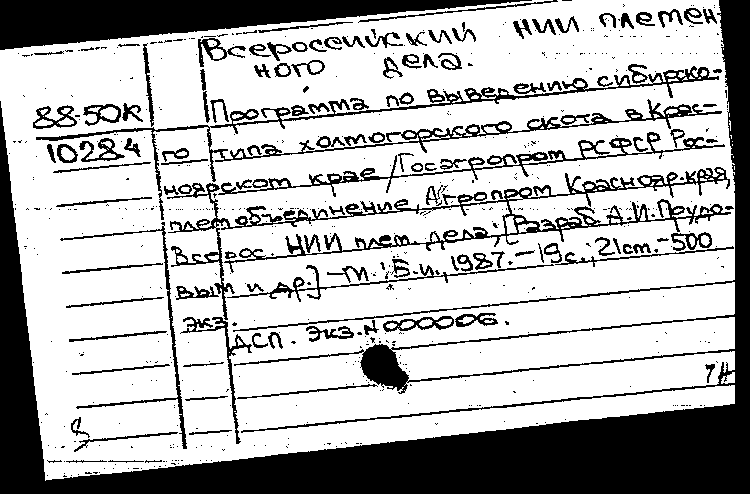 Всероссийский НИИ племен
ного дела.
88-50К
10284
Программа по выведению сибирско-
го типа холмогорского скота в Крас-
ноярском крае / Госагропром РСФСР, Рос-
племобъединение, Агропром Краснояр. края,
Всерос. НИИ плем. дела; [Разраб. А.И. Прудо-
вым и др.] - М.: Б.и., 1987. - 19 с.; 21 см. - 500
экз.
ДСП. Экз. N 000006.